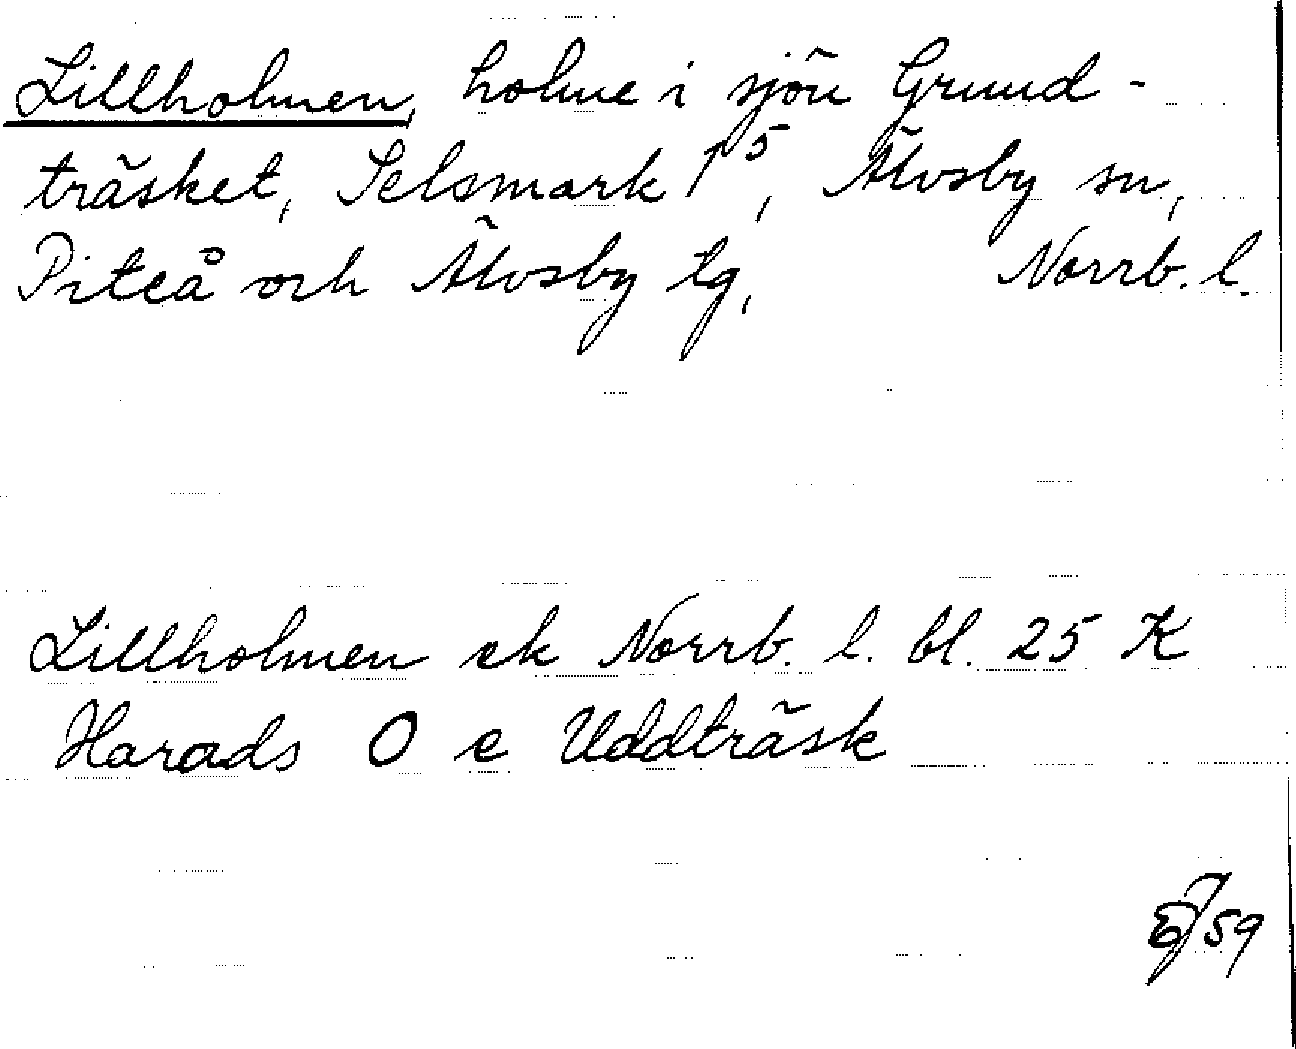 Lillholmen, holme i sjön Grund-
träsket, Selsmark 1⁵, Älvsby sn,
Piteå och Älvsby tg, Norrb. l.
Lillholmen ek Norrb. l. bl. 25 K
Harads O e Uddträsk
/59